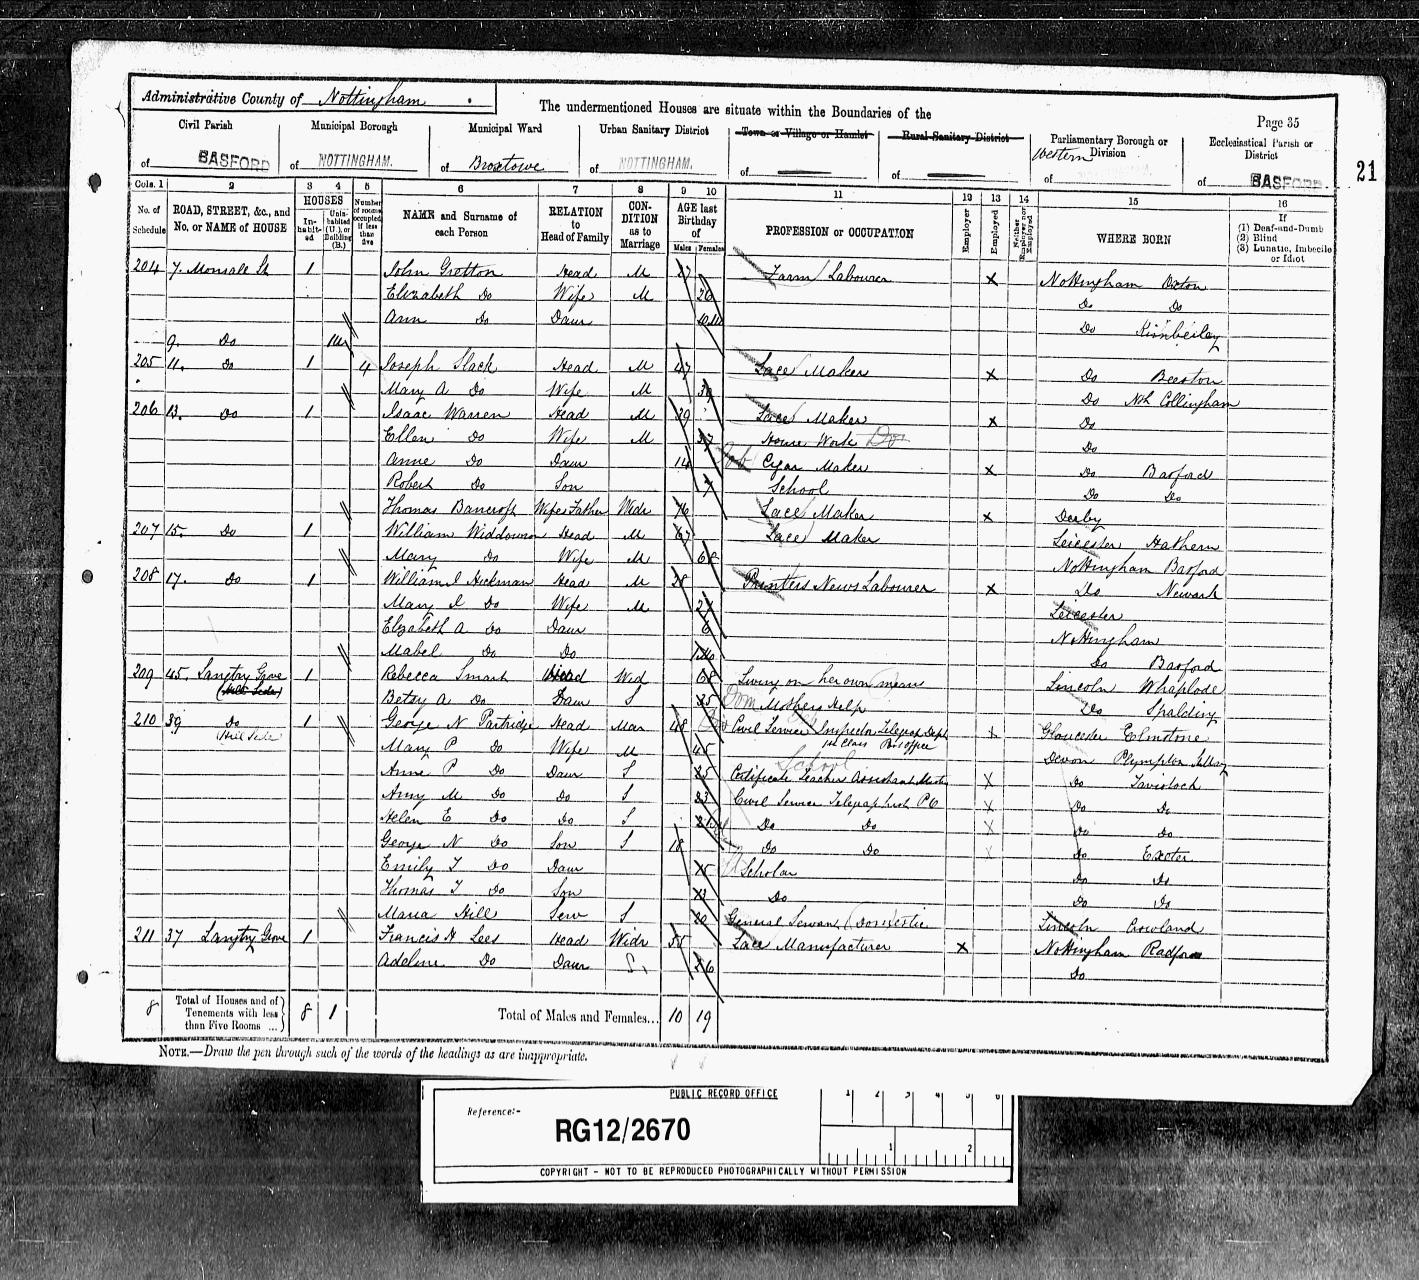 Administrative County of Nottingham
The undermentioned Houses are situate within the Boundaries of the
Page 35
Civil Parish Municipal Borough Municipal Ward Urban Sanitary District Town or Village or Hamlet Rural Sanitary District Parliamentary Borough or Division Ecclesiastical Parish or District
of BASFORD of NOTTINGHAM. of Broxtowe of NOTTINGHAM. of of Western of of BASFORD
21
Cols. 1 2 3 4 5 6 7 8 9 10 11 12 13 14 15 16
No. of Schedule ROAD, STREET, &c., and No. or NAME of HOUSE HOUSES Inhabited Uninhabited (U.), or Building (B.) Number of rooms occupied if less than five NAME and Surname of each Person RELATION to Head of Family CONDITION as to Marriage AGE last Birthday of Males Females PROFESSION or OCCUPATION Employer Employed Neither Employer nor Employed WHERE BORN If (1) Deaf-and-Dumb (2) Blind (3) Lunatic, Imbecile or Idiot
204 7. Monsale St 1 John Gretton Head M 27 Farm Labourer X Nottingham Oxton
Elizabeth Do Wife M 26 Do Do
Ann Do Daur Do Kimberley
9. Do
205 11. Do 1 4 Joseph Slack Head M 47 Lace Maker X Do Beeston
Mary A Do Wife M 39 Do Nh Collingham
206 13. Do 1 Isaac Warren Head M 39 Lace Maker X Do
Ellen Do Wife M 37 House Work Do
Anne Do Daur 14 Cigar Maker X Do Basford
Robert Do Son 7 School Do Do
Thomas Bancroft Wifes Father Widr 76 Lace Maker X Derby
207 15. Do 1 William Widdowson Head M 67 Lace Maker Leicester Hathern
Mary Do Wife M 68 Nottingham Basford
208 17. Do 1 William I Hickman Head M 28 Printers News Labourer X Do Newark
Mary I Do Wife M 27 Leicester
Elizabeth A Do Daur 6 Nottingham
Mabel Do Do Do Basford
209 45. Langtry Grove 1 Rebecca Smart Head Wid 68 Living on her own means Lincoln Whaplode
Betsy A Do Daur S 35 Mothers Help Do Spalding
210 39 Do (Hill Side) 1 George N Partridge Head Mar 48 Civil Service Inspector Telegrap Dept 1st Class Post Office X Gloucester Elmstone
Mary P Do Wife M 45 Devon Plympton
School
Anne P Do Daur S 25 Certificate Teacher Assistant X Do Tavistock
Amy M Do Do S 23 Civil Service Telegraphist P O X Do Do
Helen E Do Do S 21 Do Do X Do Do
George N Do Son S 18 Do Do X Do Exeter
Emily T Do Daur 15 Scholar Do Do
Thomas T Do Son 13 Do Do Do
Maria Hill Serv S 20 General Servant (Domestic Lincoln Crowland
211 37 Langtry Grove 1 Francis H Lees Head Widr 58 Lace Manufacturer X Nottingham Radford
Adeline Do Daur S. 26 Do
8 Total of Houses and of Tenements with less than Five Rooms ... 8 1 Total of Males and Females... 10 19
NOTE.—Draw the pen through such of the words of the headings as are inappropriate.
PUBLIC RECORD OFFICE
1 2 3 4 5 6
Reference:-
RG12/2670
1 2
COPYRIGHT - NOT TO BE REPRODUCED PHOTOGRAPHICALLY WITHOUT PERMISSION